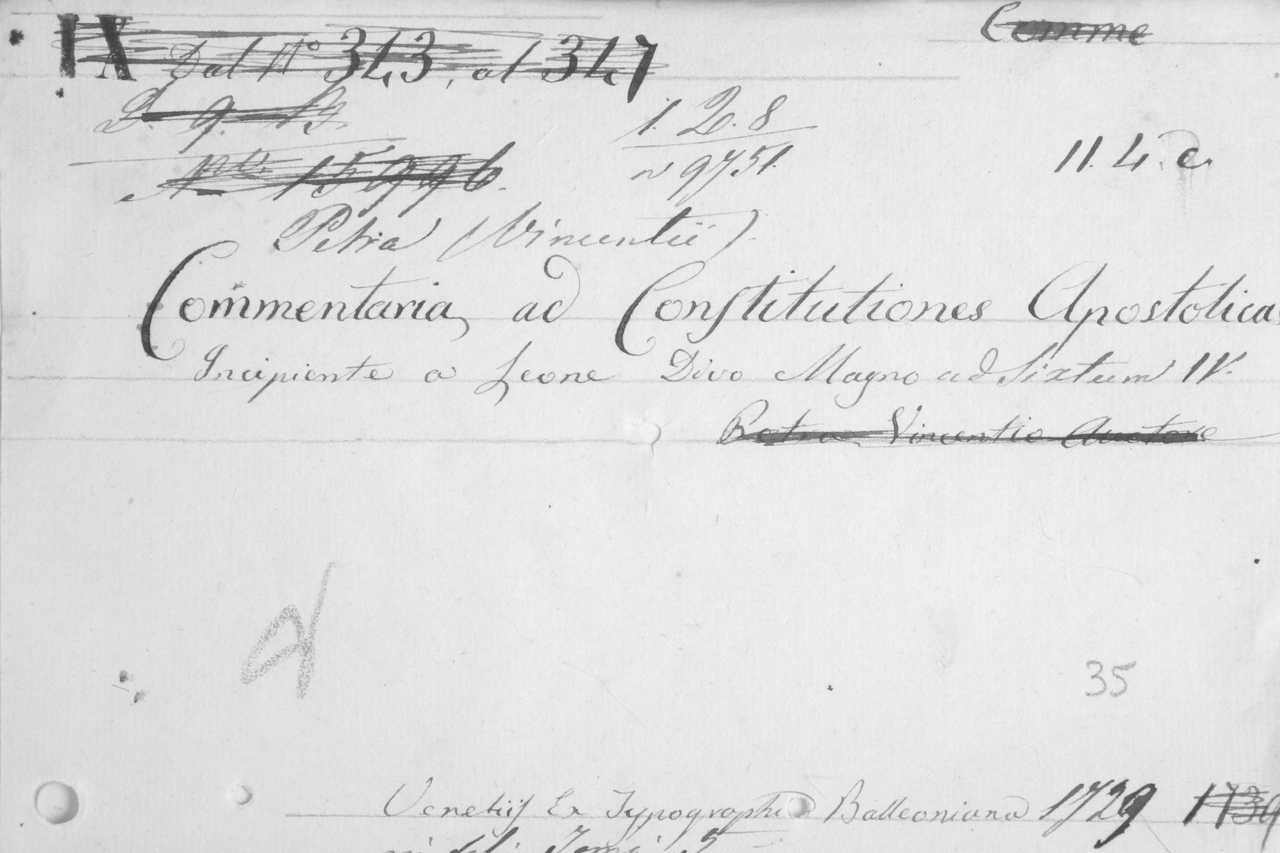 IX Dal N° 343, al 347 Comme
D. 9. 13. 1. 2. 8
N 15996. n 9751. 11. 4. c.
Petra (Vincentii).
Commentaria ad Constitutiones Apostolicas
Incipiente a Leone Divo Magno ad Sixtum IV.
Petra Vincentio Auctore
35
Venetijs Ex Typographia Balleoniana 1729
Tomi 5